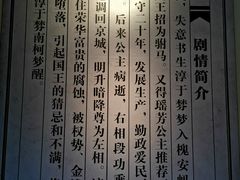 剧情简介
，失意书生淳于棼梦入槐安蚂
王招为驸马。又得瑶芳公主推荐
守二十年，发展生产，勤政爱民
。后来公主病逝，右相段功乘
调回京城，明升暗降尊为左相。
住荣华富贵的腐蚀，被权势、金
堕落，引起国王的猜忌和不满，
淳于棼南柯梦醒。